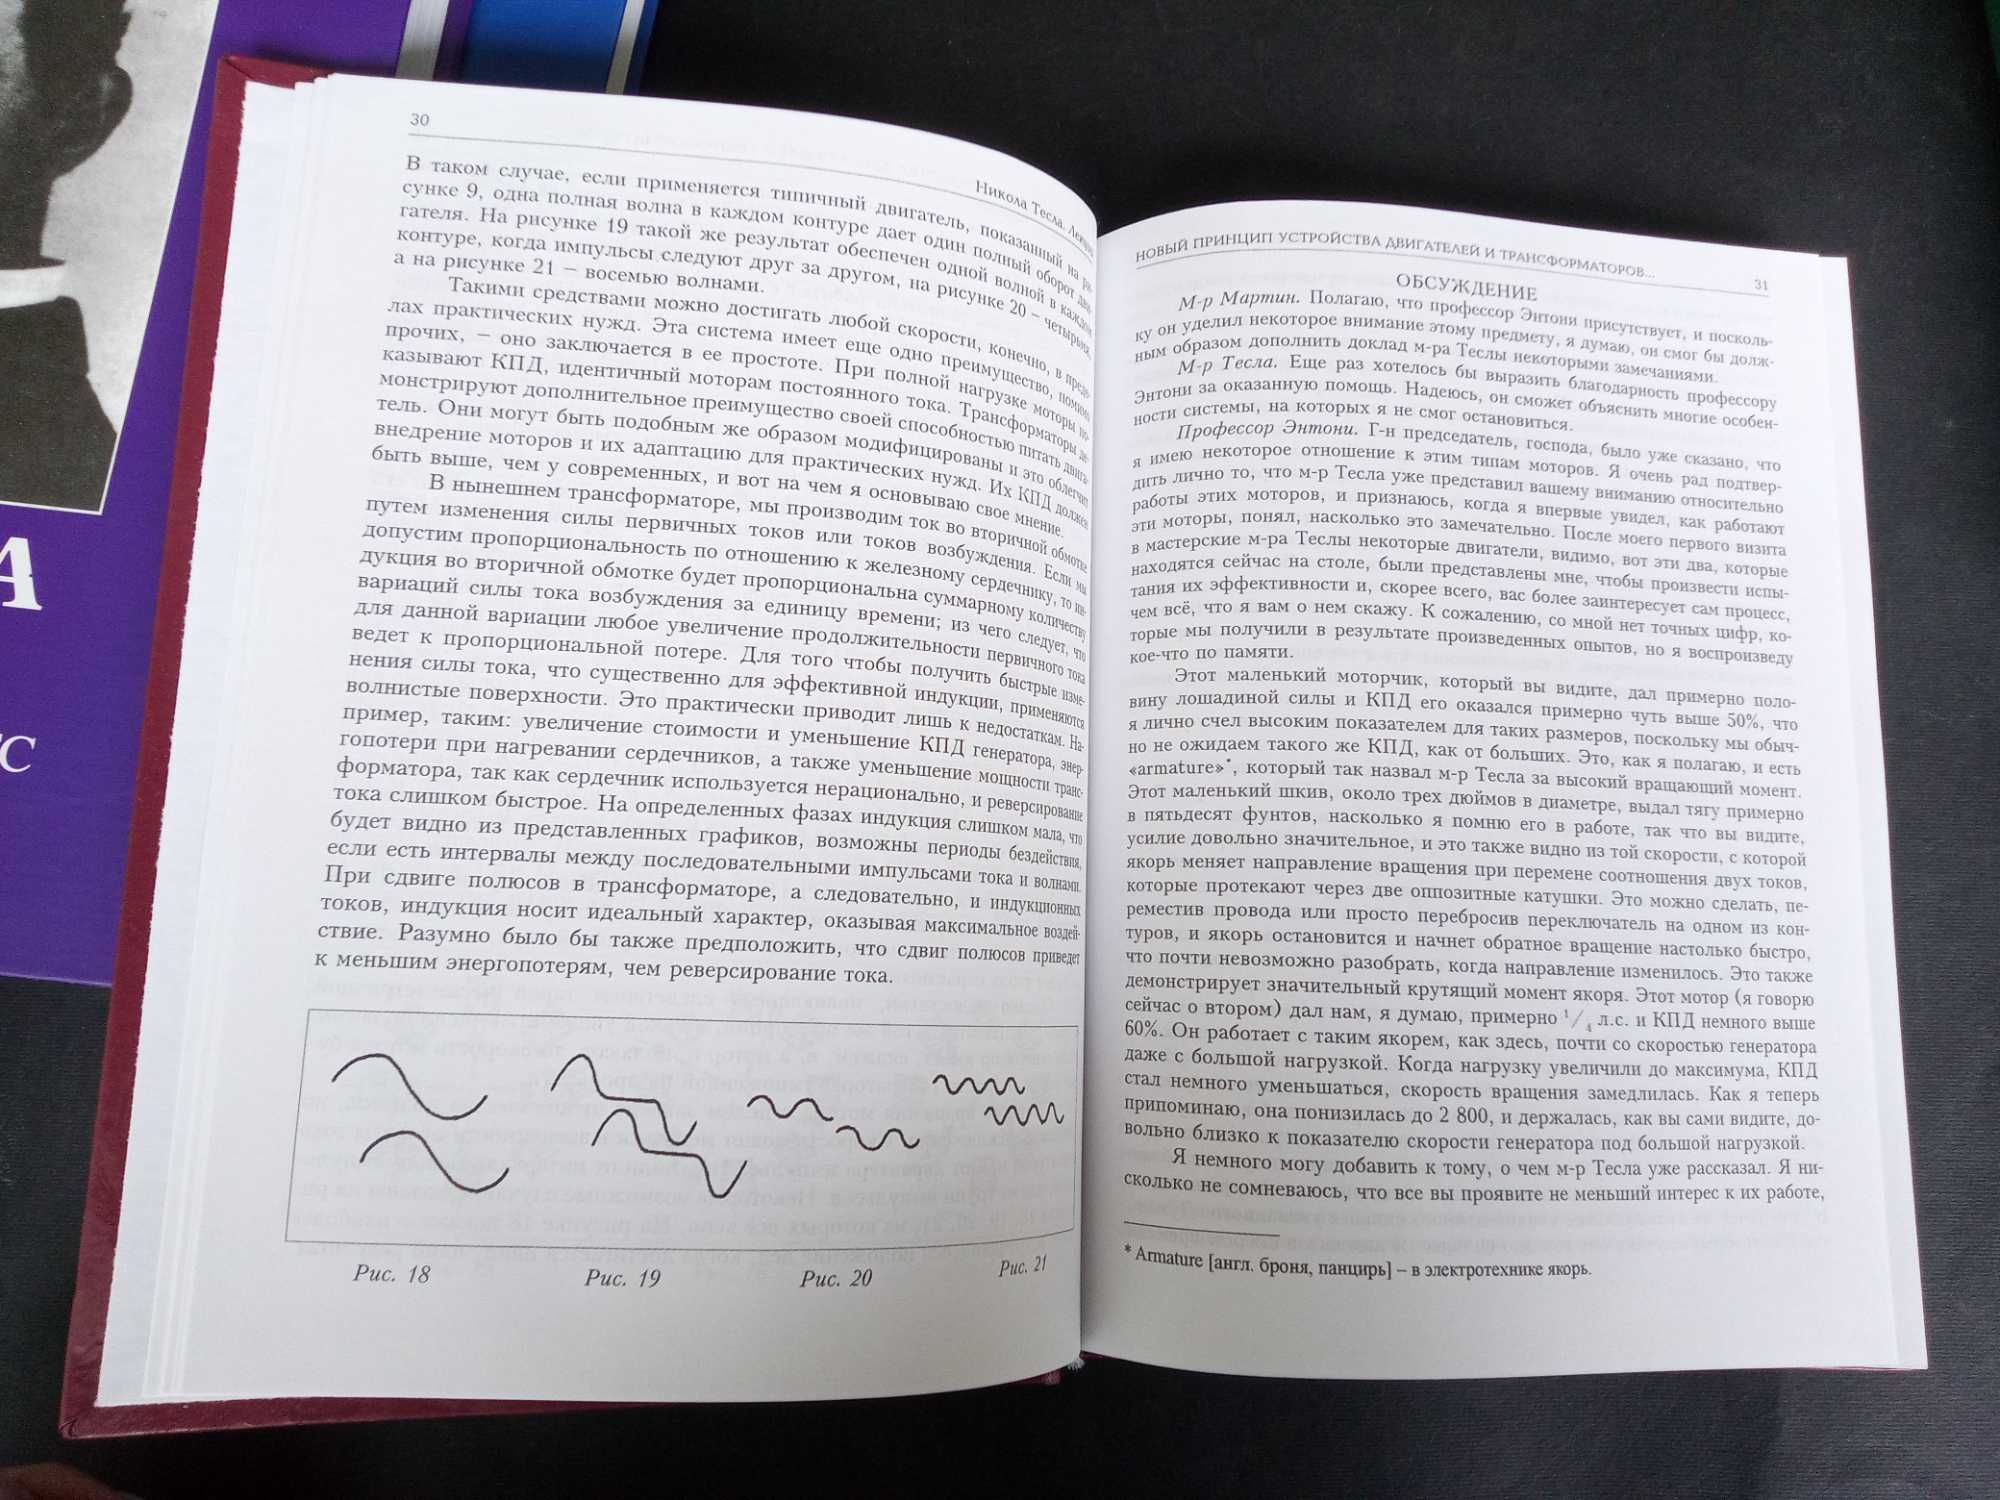 А
С
30
Никола Тесла. Лекции
В таком случае, если применяется типичный двигатель, показанный на ри-
сунке 9, одна полная волна в каждом контуре дает один полный оборот дви-
гателя. На рисунке 19 такой же результат обеспечен одной волной в каждом
контуре, когда импульсы следуют друг за другом, на рисунке 20 – четырьмя,
а на рисунке 21 – восемью волнами.
Такими средствами можно достигать любой скорости, конечно, в преде-
лах практических нужд. Эта система имеет еще одно преимущество, помимо
прочих, – оно заключается в ее простоте. При полной нагрузке моторы по-
казывают КПД, идентичный моторам постоянного тока. Трансформаторы де-
монстрируют дополнительное преимущество своей способностью питать двига-
тель. Они могут быть подобным же образом модифицированы и это облегчит
внедрение моторов и их адаптацию для практических нужд. Их КПД должен
быть выше, чем у современных, и вот на чем я основываю свое мнение.
В нынешнем трансформаторе, мы производим ток во вторичной обмотке
путем изменения силы первичных токов или токов возбуждения. Если мы
допустим пропорциональность по отношению к железному сердечнику, то ин-
дукция во вторичной обмотке будет пропорциональна суммарному количеству
вариаций силы тока возбуждения за единицу времени; из чего следует, что
для данной вариации любое увеличение продолжительности первичного тока
ведет к пропорциональной потере. Для того чтобы получить быстрые изме-
нения силы тока, что существенно для эффективной индукции, применяются
волнистые поверхности. Это практически приводит лишь к недостаткам. На-
пример, таким: увеличение стоимости и уменьшение КПД генератора, энер-
гопотери при нагревании сердечников, а также уменьшение мощности транс-
форматора, так как сердечник используется нерационально, и реверсирование
тока слишком быстрое. На определенных фазах индукция слишком мала, что
будет видно из представленных графиков, возможны периоды бездействия,
если есть интервалы между последовательными импульсами тока и волнами.
При сдвиге полюсов в трансформаторе, а следовательно, и индукционных
токов, индукция носит идеальный характер, оказывая максимальное воздей-
ствие. Разумно было бы также предположить, что сдвиг полюсов приведет
к меньшим энергопотерям, чем реверсирование тока.
Рис. 18
Рис. 19
Рис. 20
Рис. 21
НОВЫЙ ПРИНЦИП УСТРОЙСТВА ДВИГАТЕЛЕЙ И ТРАНСФОРМАТОРОВ...
31
ОБСУЖДЕНИЕ
М-р Мартин. Полагаю, что профессор Энтони присутствует, и посколь-
ку он уделил некоторое внимание этому предмету, я думаю, он смог бы долж-
ным образом дополнить доклад м-ра Теслы некоторыми замечаниями.
М-р Тесла. Еще раз хотелось бы выразить благодарность профессору
Энтони за оказанную помощь. Надеюсь, он сможет объяснить многие особен-
ности системы, на которых я не смог остановиться.
Профессор Энтони. Г-н председатель, господа, было уже сказано, что
я имею некоторое отношение к этим типам моторов. Я очень рад подтвер-
дить лично то, что м-р Тесла уже представил вашему вниманию относительно
работы этих моторов, и признаюсь, когда я впервые увидел, как работают
эти моторы, понял, насколько это замечательно. После моего первого визита
в мастерские м-ра Теслы некоторые двигатели, видимо, вот эти два, которые
находятся сейчас на столе, были представлены мне, чтобы произвести испы-
тания их эффективности и, скорее всего, вас более заинтересует сам процесс,
чем всё, что я вам о нем скажу. К сожалению, со мной нет точных цифр, ко-
торые мы получили в результате произведенных опытов, но я воспроизведу
кое-что по памяти.
Этот маленький моторчик, который вы видите, дал примерно поло-
вину лошадиной силы и КПД его оказался примерно чуть выше 50%, что
я лично счел высоким показателем для таких размеров, поскольку мы обыч-
но не ожидаем такого же КПД, как от больших. Это, как я полагаю, и есть
«armature»*, который так назвал м-р Тесла за высокий вращающий момент.
Этот маленький шкив, около трех дюймов в диаметре, выдал тягу примерно
в пятьдесят фунтов, насколько я помню его в работе, так что вы видите,
усилие довольно значительное, и это также видно из той скорости, с которой
якорь меняет направление вращения при перемене соотношения двух токов,
которые протекают через две оппозитные катушки. Это можно сделать, пе-
реместив провода или просто перебросив переключатель на одном из кон-
туров, и якорь остановится и начнет обратное вращение настолько быстро,
что почти невозможно разобрать, когда направление изменилось. Это также
демонстрирует значительный крутящий момент якоря. Этот мотор (я говорю
сейчас о втором) дал нам, я думаю, примерно 1/4 л.с. и КПД немного выше
60%. Он работает с таким якорем, как здесь, почти со скоростью генератора
даже с большой нагрузкой. Когда нагрузку увеличили до максимума, КПД
стал немного уменьшаться, скорость вращения замедлилась. Как я теперь
припоминаю, она понизилась до 2 800, и держалась, как вы сами видите, до-
вольно близко к показателю скорости генератора под большой нагрузкой.
Я немного могу добавить к тому, о чем м-р Тесла уже рассказал. Я ни-
сколько не сомневаюсь, что все вы проявите не меньший интерес к их работе,
* Armature [англ. броня, панцирь] – в электротехнике якорь.